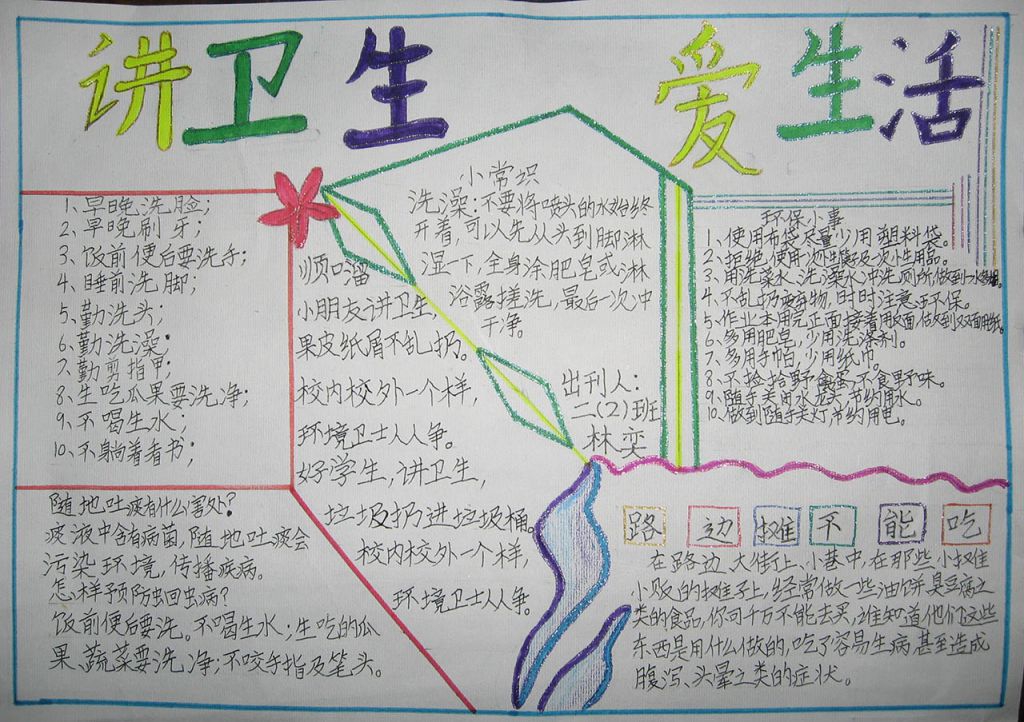 讲卫生 爱生活
1、早晚洗脸；
2、早晚刷牙；
3、饭前便后要洗手；
4、睡前洗脚；
5、勤洗头；
6、勤洗澡；
7、勤剪指甲；
8、生吃瓜果要洗净；
9、不喝生水；
10、不躺着看书；
随地吐痰有什么害处？
痰液中含有病菌，随地吐痰会
污染环境，传播疾病。
怎样预防蛔虫病？
饭前便后要洗。不喝生水；生吃的瓜
果、蔬菜要洗净；不咬手指及笔头。
顺口溜
小朋友讲卫生，
果皮纸屑不乱扔。
校内校外一个样，
环境卫士人人争。
好学生，讲卫生，
垃圾扔进垃圾桶。
校内校外一个样，
环境卫士人人争。
小常识
洗澡：不要将喷头的水始终
开着，可以先从头到脚淋
湿一下，全身涂肥皂或淋
浴露搓洗，最后一次冲
干净。
出刊人：
二（2）班
林奕
环保小事
1、使用布袋，尽量少用塑料袋。
2、拒绝使用一次性餐具及一次性用品。
3、用洗菜水、洗澡水冲洗厕所，做到一水多用。
4、不乱扔废弃物，时时注意环保。
5、作业本用完正面接着用反面，做到双面用纸。
6、多用肥皂，少用洗涤剂。
7、多用手帕，少用纸巾。
8、不捡拾野禽蛋，不食野味。
9、随手关闭水龙头，节约用水。
10、做到随手关灯，节约用电。
路边摊不能吃
在路边、大街上、小巷中，在那些小摊
小贩的摊子上，经常做一些油饼、臭豆腐之
类的食品，你可千万不能去买，谁知道他们这些
东西是用什么做的，吃了容易生病，甚至造成
腹泻、头晕之类的症状。